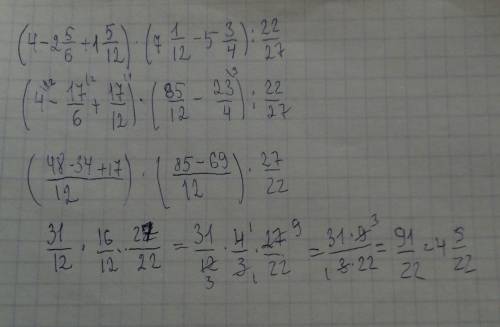 (4-2 5/6+1 5/12)·(7 1/12-5 3/4):22/27
(4^12-17/6^12+17/12^1)·(85/12-23/4^3):22/27
(48-34+17/12)·(85-69/12)·27/22
31/12·16/12·27/22=31/12 3·4 1/3 1·27 9/22=31·9 3/1 3·22=91/22=4 5/22